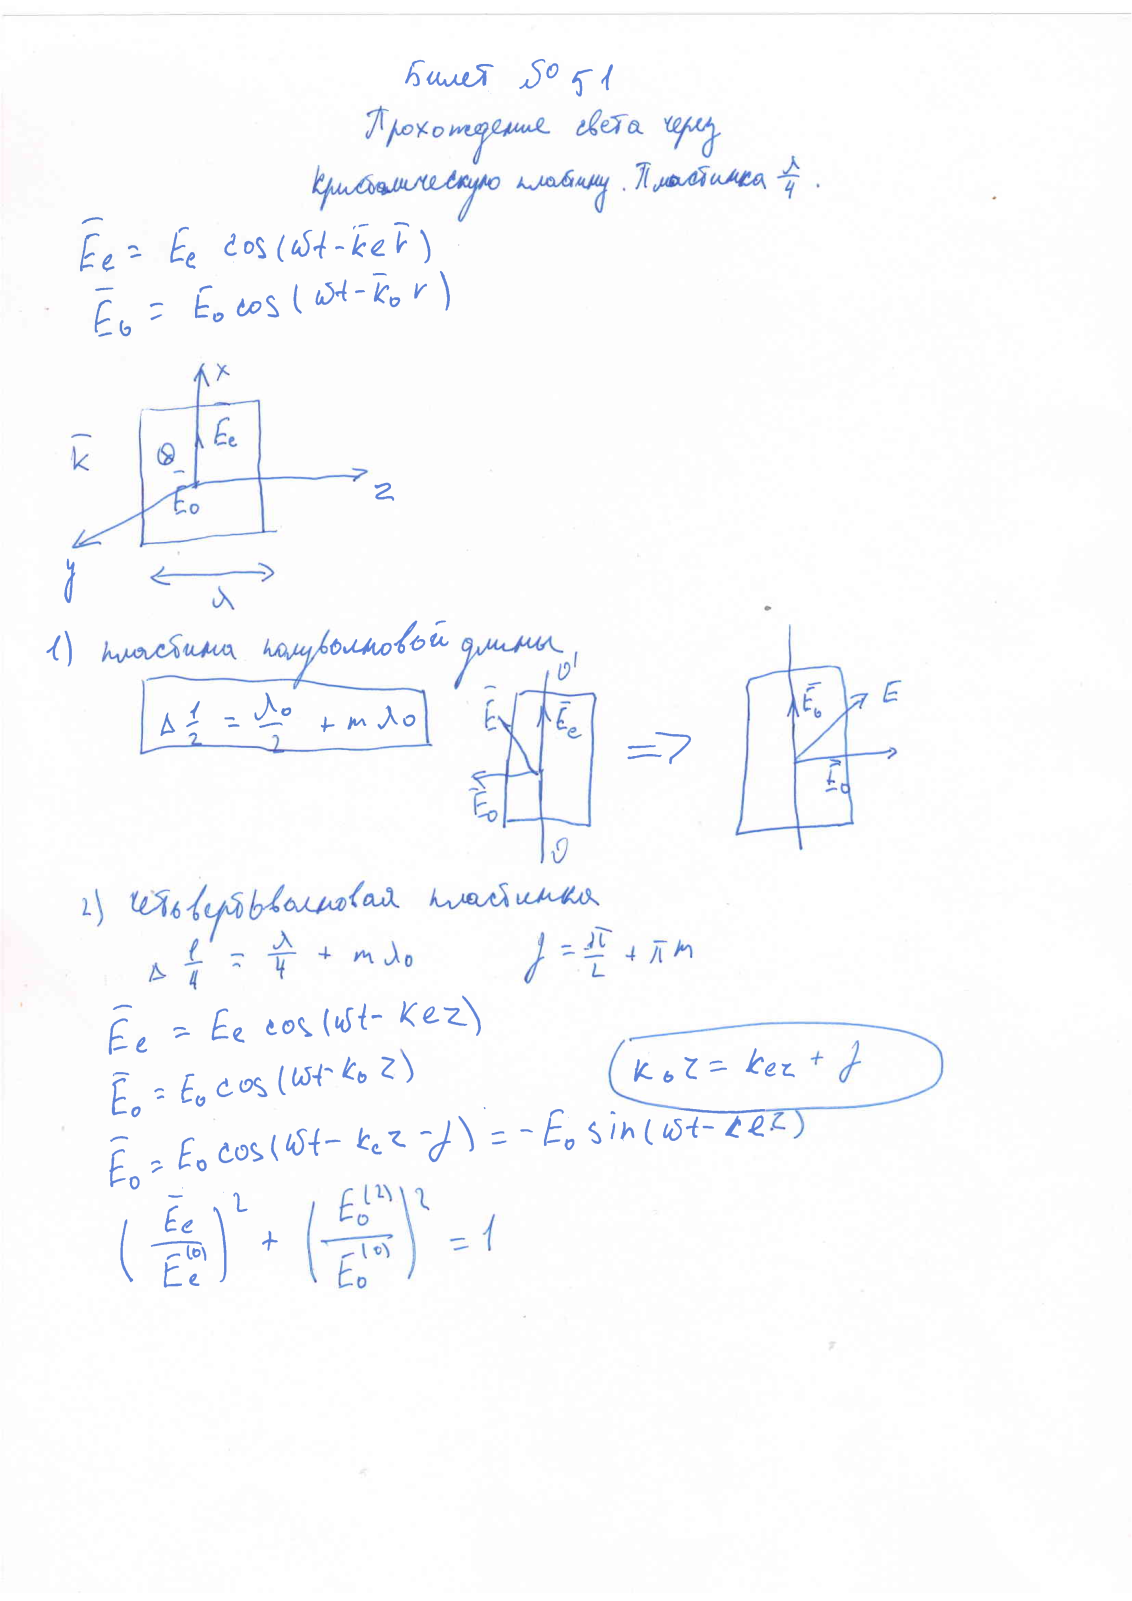 Билет № 51
Прохождение света через
кристалическую пластину. Пластинка λ/4.
E̅e = E̅e cos(ωt - k̅e r̅)
E̅o = E̅o cos(ωt - k̅o r)
x
E̅e
k̅
⊗
E̅o
z
y
λ
1) пластина полуволновой длины
Δ 1/2 = λo/2 + m λo
O'
E̅
E̅e
E̅o
O
=>
E̅o
E
E̅o
2) четьвертьволновая пластинка
Δ l/4 = λ/4 + m λo
f = π/2 + πm
E̅e = Ee cos(ωt - kez)
E̅o = Eo cos(ωt - ko z)
ko z = kez + f
E̅o = Eo cos(ωt - ke z - f) = - Eo sin(ωt - kez)
(E̅e / E̅e^(0))^2 + (Eo^(2) / Eo^(0))^2 = 1